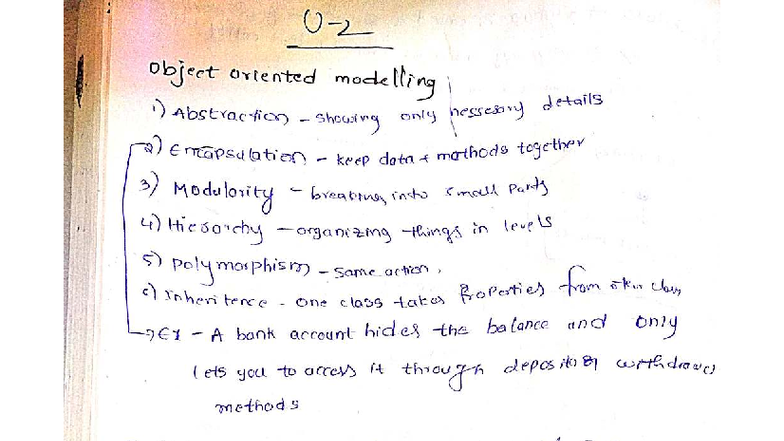 U-2
Object oriented modelling
1) Abstraction - showing only nessesary details
2) Encapsulation - keep data + mathods together
3) Modulority - breaking into small parts
4) Hierarchy - organizing things in levels
5) polymorphism - same action,
6) Inheritence - one class takes properties from other class
→ Ex - A bank account hides the balance and only
lets you to access it through deposit or withdraw
methods